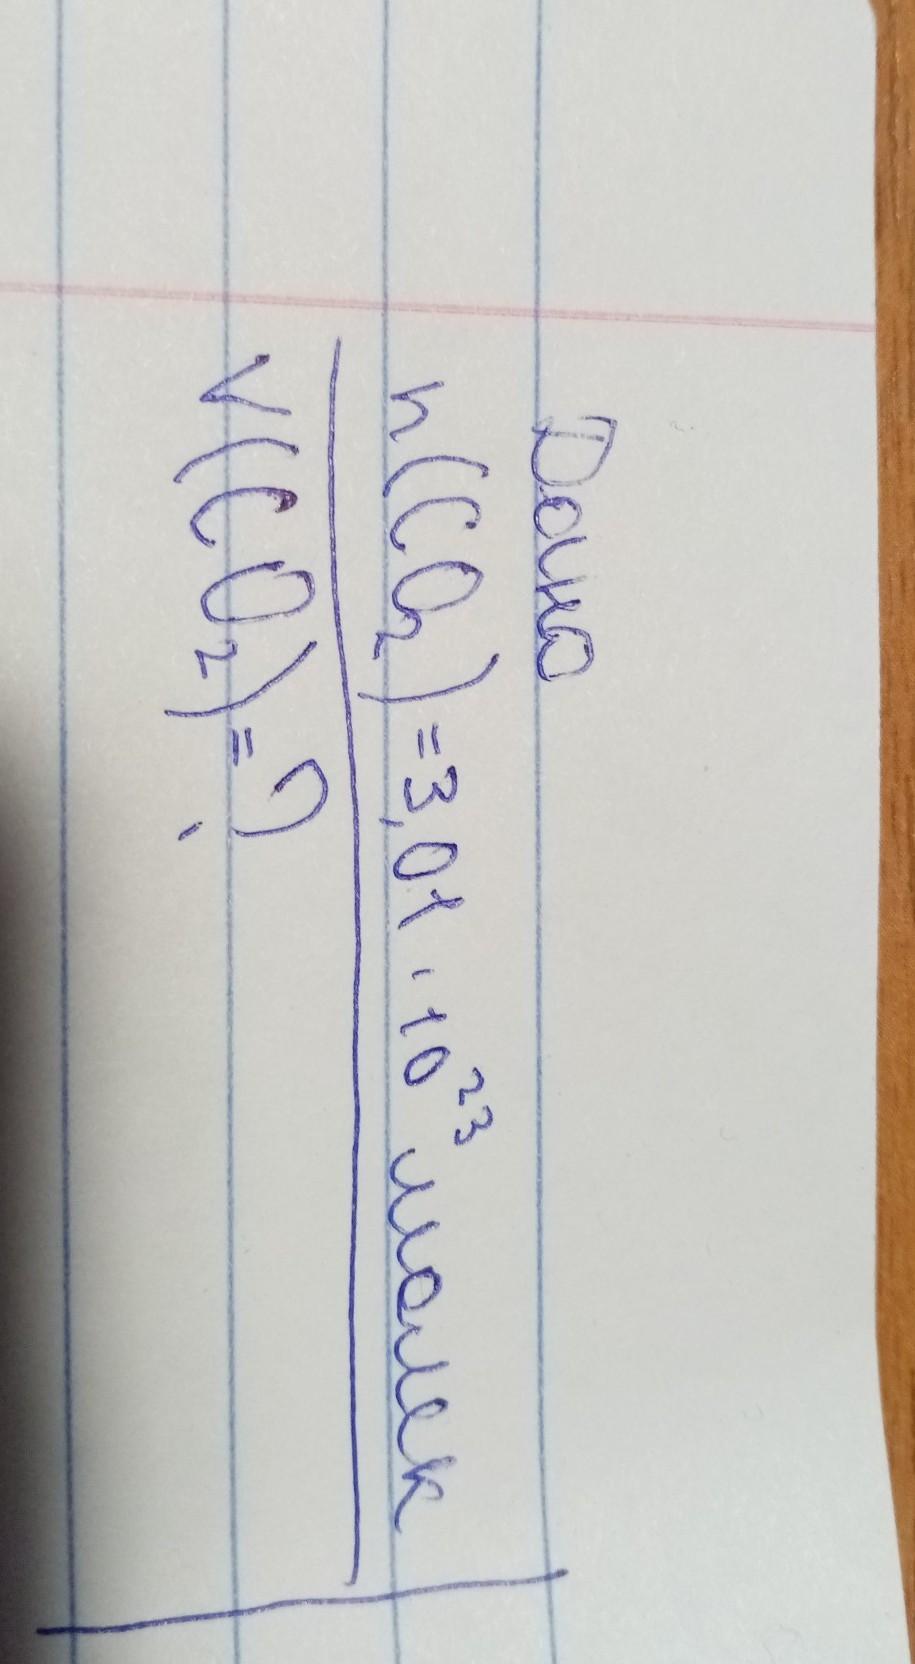 Дано
n(CO₂)=3,01·10²³ молек
V(CO₂)=?